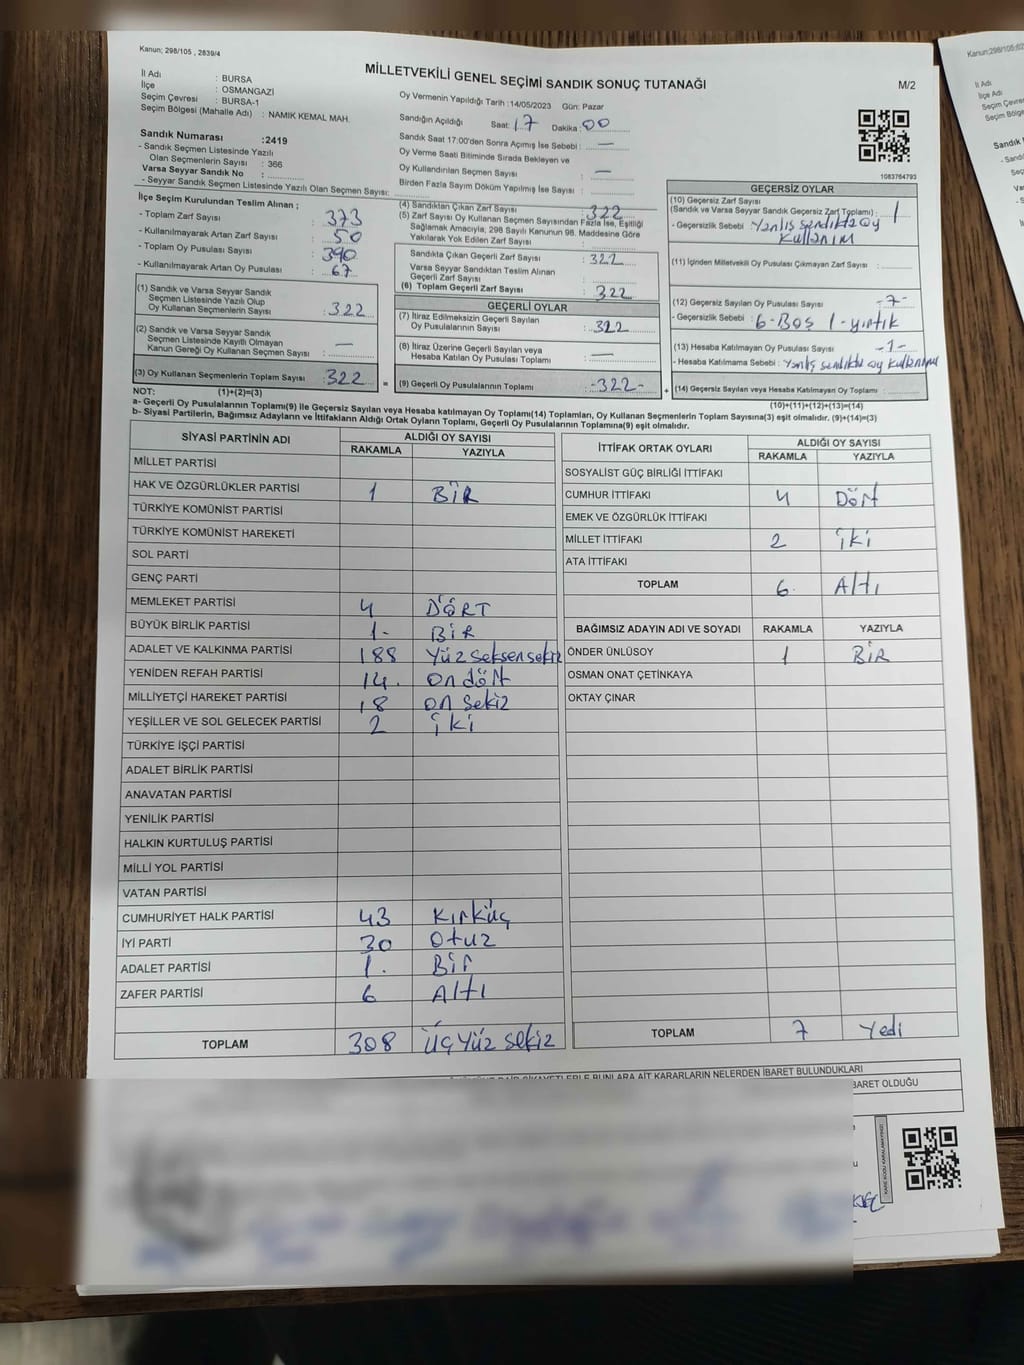 Kanun; 298/105 , 2839/4
MİLLETVEKİLİ GENEL SEÇİMİ SANDIK SONUÇ TUTANAĞI
M/2
İl Adı : BURSA
İlçe : OSMANGAZİ
Seçim Çevresi : BURSA-1
Seçim Bölgesi (Mahalle Adı) : NAMIK KEMAL MAH.
Sandık Numarası :2419
- Sandık Seçmen Listesinde Yazılı
Olan Seçmenlerin Sayısı : 366
Varsa Seyyar Sandık No :
- Seyyar Sandık Seçmen Listesinde Yazılı Olan Seçmen Sayısı:
Oy Vermenin Yapıldığı Tarih :14/05/2023 Gün: Pazar
Sandığın Açıldığı Saat: 17 Dakika: 00
Sandık Saat 17:00'den Sonra Açılmış İse Sebebi : —
Oy Verme Saati Bitiminde Sırada Bekleyen ve
Oy Kullandırılan Seçmen Sayısı : —
Birden Fazla Sayım Döküm Yapılmış İse Sayısı :
1083764793
İlçe Seçim Kurulundan Teslim Alınan ;
- Toplam Zarf Sayısı : 373
- Kullanılmayarak Artan Zarf Sayısı : 50
- Toplam Oy Pusulası Sayısı : 390
- Kullanılmayarak Artan Oy Pusulası : 67
(1) Sandık ve Varsa Seyyar Sandık
Seçmen Listesinde Yazılı Olup
Oy Kullanan Seçmenlerin Sayısı : 322
(2) Sandık ve Varsa Seyyar Sandık
Seçmen Listesinde Kayıtlı Olmayan
Kanun Gereği Oy Kullanan Seçmen Sayısı : —
(3) Oy Kullanan Seçmenlerin Toplam Sayısı : 322
(4) Sandıktan Çıkan Zarf Sayısı : 322
(5) Zarf Sayısı Oy Kullanan Seçmen Sayısından Fazla İse, Eşitliği
Sağlamak Amacıyla, 298 Sayılı Kanunun 98. Maddesine Göre
Yakılarak Yok Edilen Zarf Sayısı :
Sandıkta Çıkan Geçerli Zarf Sayısı : 322
Varsa Seyyar Sandıktan Teslim Alınan
Geçerli Zarf Sayısı :
(6) Toplam Geçerli Zarf Sayısı : 322
GEÇERLİ OYLAR
(7) İtiraz Edilmeksizin Geçerli Sayılan
Oy Pusulalarının Sayısı : 322
(8) İtiraz Üzerine Geçerli Sayılan veya
Hesaba Katılan Oy Pusulası Toplamı : —
= (9) Geçerli Oy Pusulalarının Toplamı : -322- +
GEÇERSİZ OYLAR
(10) Geçersiz Zarf Sayısı
(Sandık ve Varsa Seyyar Sandık Geçersiz Zarf Toplamı) : 1
- Geçersizlik Sebebi : Yanlış sandıkta oy
kullanım
(11) İçinden Milletvekili Oy Pusulası Çıkmayan Zarf Sayısı :
(12) Geçersiz Sayılan Oy Pusulası Sayısı : -7-
- Geçersizlik Sebebi : 6-Boş 1-yırtık
(13) Hesaba Katılmayan Oy Pusulası Sayısı : -1-
- Hesaba Katılmama Sebebi : Yanlış sandıkta oy kullanımı
(14) Geçersiz Sayılan veya Hesaba Katılmayan Oy Toplamı :
NOT: (1)+(2)=(3)
(10)+(11)+(12)+(13)=(14)
a- Geçerli Oy Pusulalarının Toplamı(9) ile Geçersiz Sayılan veya Hesaba katılmayan Oy Toplamı(14) Toplamları, Oy Kullanan Seçmenlerin Toplam Sayısına(3) eşit olmalıdır. (9)+(14)=(3)
b- Siyasi Partilerin, Bağımsız Adayların ve İttifakların Aldığı Ortak Oyların Toplamı, Geçerli Oy Pusulalarının Toplamına(9) eşit olmalıdır.
SİYASİ PARTİNİN ADI ALDIĞI OY SAYISI
RAKAMLA YAZIYLA
MİLLET PARTİSİ
HAK VE ÖZGÜRLÜKLER PARTİSİ 1 BİR
TÜRKİYE KOMÜNİST PARTİSİ
TÜRKİYE KOMÜNİST HAREKETİ
SOL PARTİ
GENÇ PARTİ
MEMLEKET PARTİSİ 4 DÖRT
BÜYÜK BİRLİK PARTİSİ 1- BİR
ADALET VE KALKINMA PARTİSİ 188 Yüz seksen sekiz
YENİDEN REFAH PARTİSİ 14. on dört
MİLLİYETÇİ HAREKET PARTİSİ 18 on sekiz
YEŞİLLER VE SOL GELECEK PARTİSİ 2 iki
TÜRKİYE İŞÇİ PARTİSİ
ADALET BİRLİK PARTİSİ
ANAVATAN PARTİSİ
YENİLİK PARTİSİ
HALKIN KURTULUŞ PARTİSİ
MİLLİ YOL PARTİSİ
VATAN PARTİSİ
CUMHURİYET HALK PARTİSİ 43 Kırküç
İYİ PARTİ 30 Otuz
ADALET PARTİSİ 1. Bir
ZAFER PARTİSİ 6 Altı
TOPLAM 308 Üç Yüz Sekiz
İTTİFAK ORTAK OYLARI ALDIĞI OY SAYISI
RAKAMLA YAZIYLA
SOSYALİST GÜÇ BİRLİĞİ İTTİFAKI
CUMHUR İTTİFAKI 4 Dört
EMEK VE ÖZGÜRLÜK İTTİFAKI
MİLLET İTTİFAKI 2 iki
ATA İTTİFAKI
TOPLAM 6. Altı
BAĞIMSIZ ADAYIN ADI VE SOYADI RAKAMLA YAZIYLA
ÖNDER ÜNLÜSOY 1 BİR
OSMAN ONAT ÇETİNKAYA
OKTAY ÇINAR
TOPLAM 7 Yedi
ŞİKAYETLERLE BUNLARA AİT KARARLARIN NELERDEN İBARET BULUNDUKLARI
BARET OLDUĞU
KARE KODU KARALAMAYINIZ!
Kanun:298/105
İl Adı
İlçe Adı
Seçim Çevresi
Seçim Bölgesi
Sandık